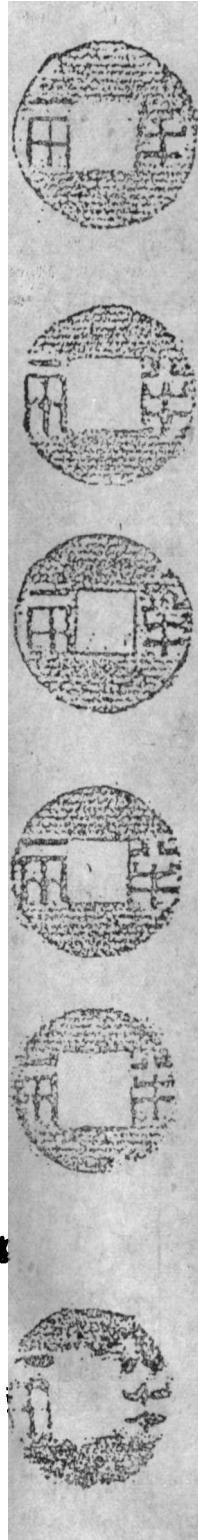 半兩
半兩
半兩
半兩
半兩
半兩